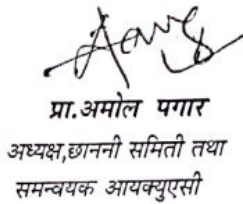 प्रा.अमोल पगार
अध्यक्ष,छाननी समिती तथा
समन्वयक आयक्युएसी